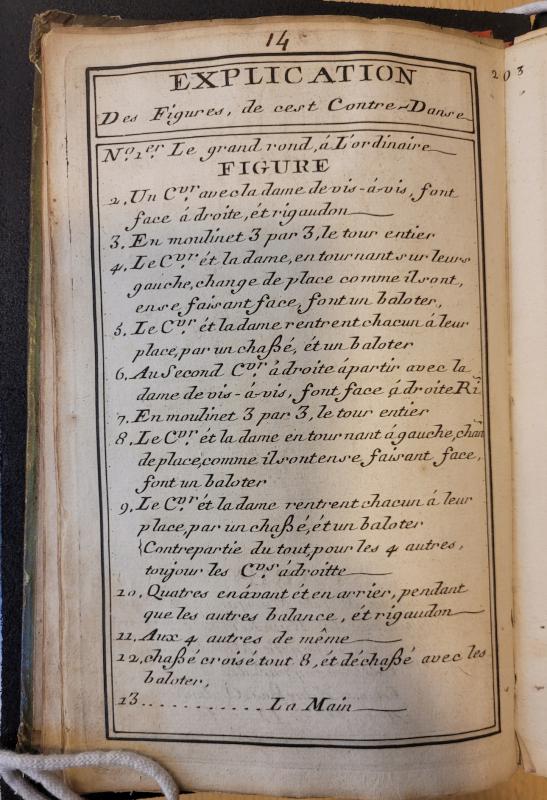 14
203
EXPLICATION
Des Figures, de cest Contre-Danse
No. 1.er Le grand rond, á L'ordinaire
FIGURE
2. Un Cvr. avec la dame de vis-á-vis, font
face á droite, ét rigaudon
3. En moulinet 3 par 3, le tour entier
4. Le Cvr. ét la dame, en tournant sur leurs
gauche, change de place comme il sont,
en se faisant face, font un baloter,
5. Le Cvr. ét la dame rentrent chacun á leur
place, par un chaßé, ét un baloter
6. Au Second Cvr. á droite á partir avec la
dame de vis-á-vis, font face á droite Ri
7. En moulinet 3 par 3, le tour entier
8. Le Cvr. ét la dame en tournant á gauche, chan
de place, comme il sont en se faisant face,
font un baloter
9. Le Cvr. ét la dame rentrent chacun á leur
place, par un chaßé, ét un baloter
Contrepartie du tout, pour les 4 autres,
toujour les Cvrs. á droitte
10. Quatres en ávant ét en arrier, pendant
que les autres balance, ét rigaudon
11. Aux 4 autres de même
12, chaßé croisé tout 8, ét déchaßé avec les
baloter,
13 . . . . . . . . . . . La Main